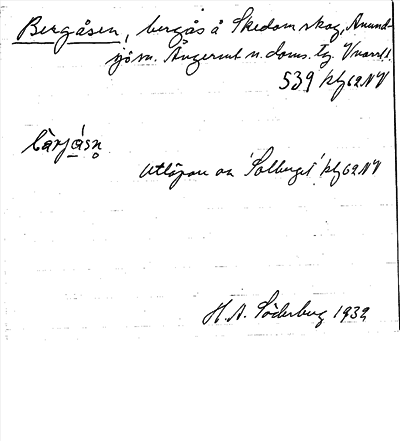 Bergåsen, bergås å Skedom skog, Anund-
sjö sn. Ångerml n. doms. tg. V norrl.
539 kbl 62 NV
bàrjásn̥
Utlöpare av 'Solberget' kbl 62 NV
H. A. Söderberg 1932